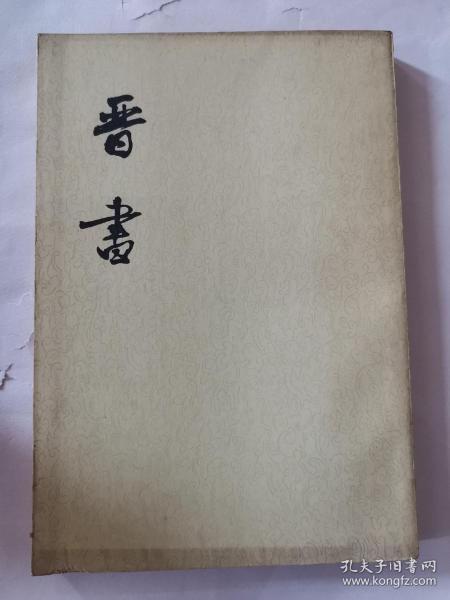 晋書
孔夫子旧书网
www.kongfz.com